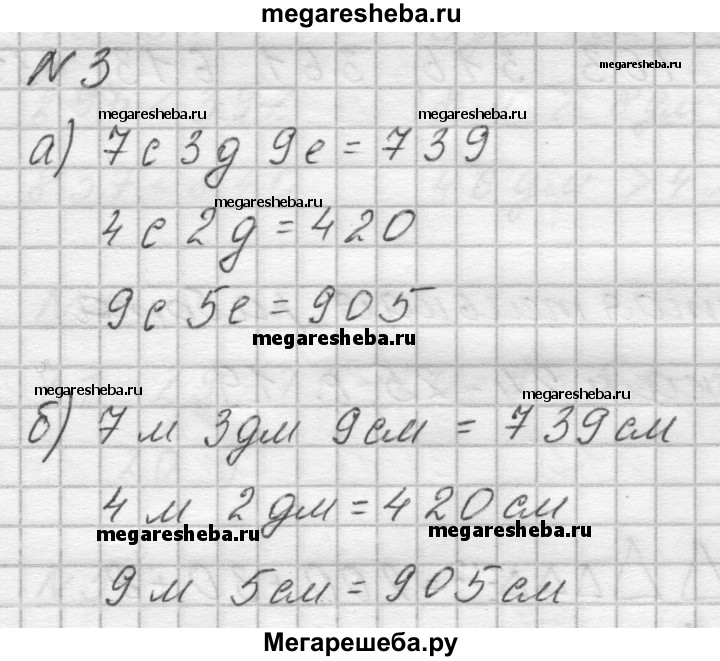 megaresheba.ru
N 3
megaresheba.ru
megaresheba.ru megaresheba.ru
а) 7с 3д 9е = 739
megaresheba.ru
4с 2д = 420
9с 5е = 905
megaresheba.ru
megaresheba.ru megaresheba.ru
б) 7м 3дм 9см = 739см
4м 2дм = 420см
megaresheba.ru megaresheba.ru
9м 5см = 905см
Мегарешеба.ру